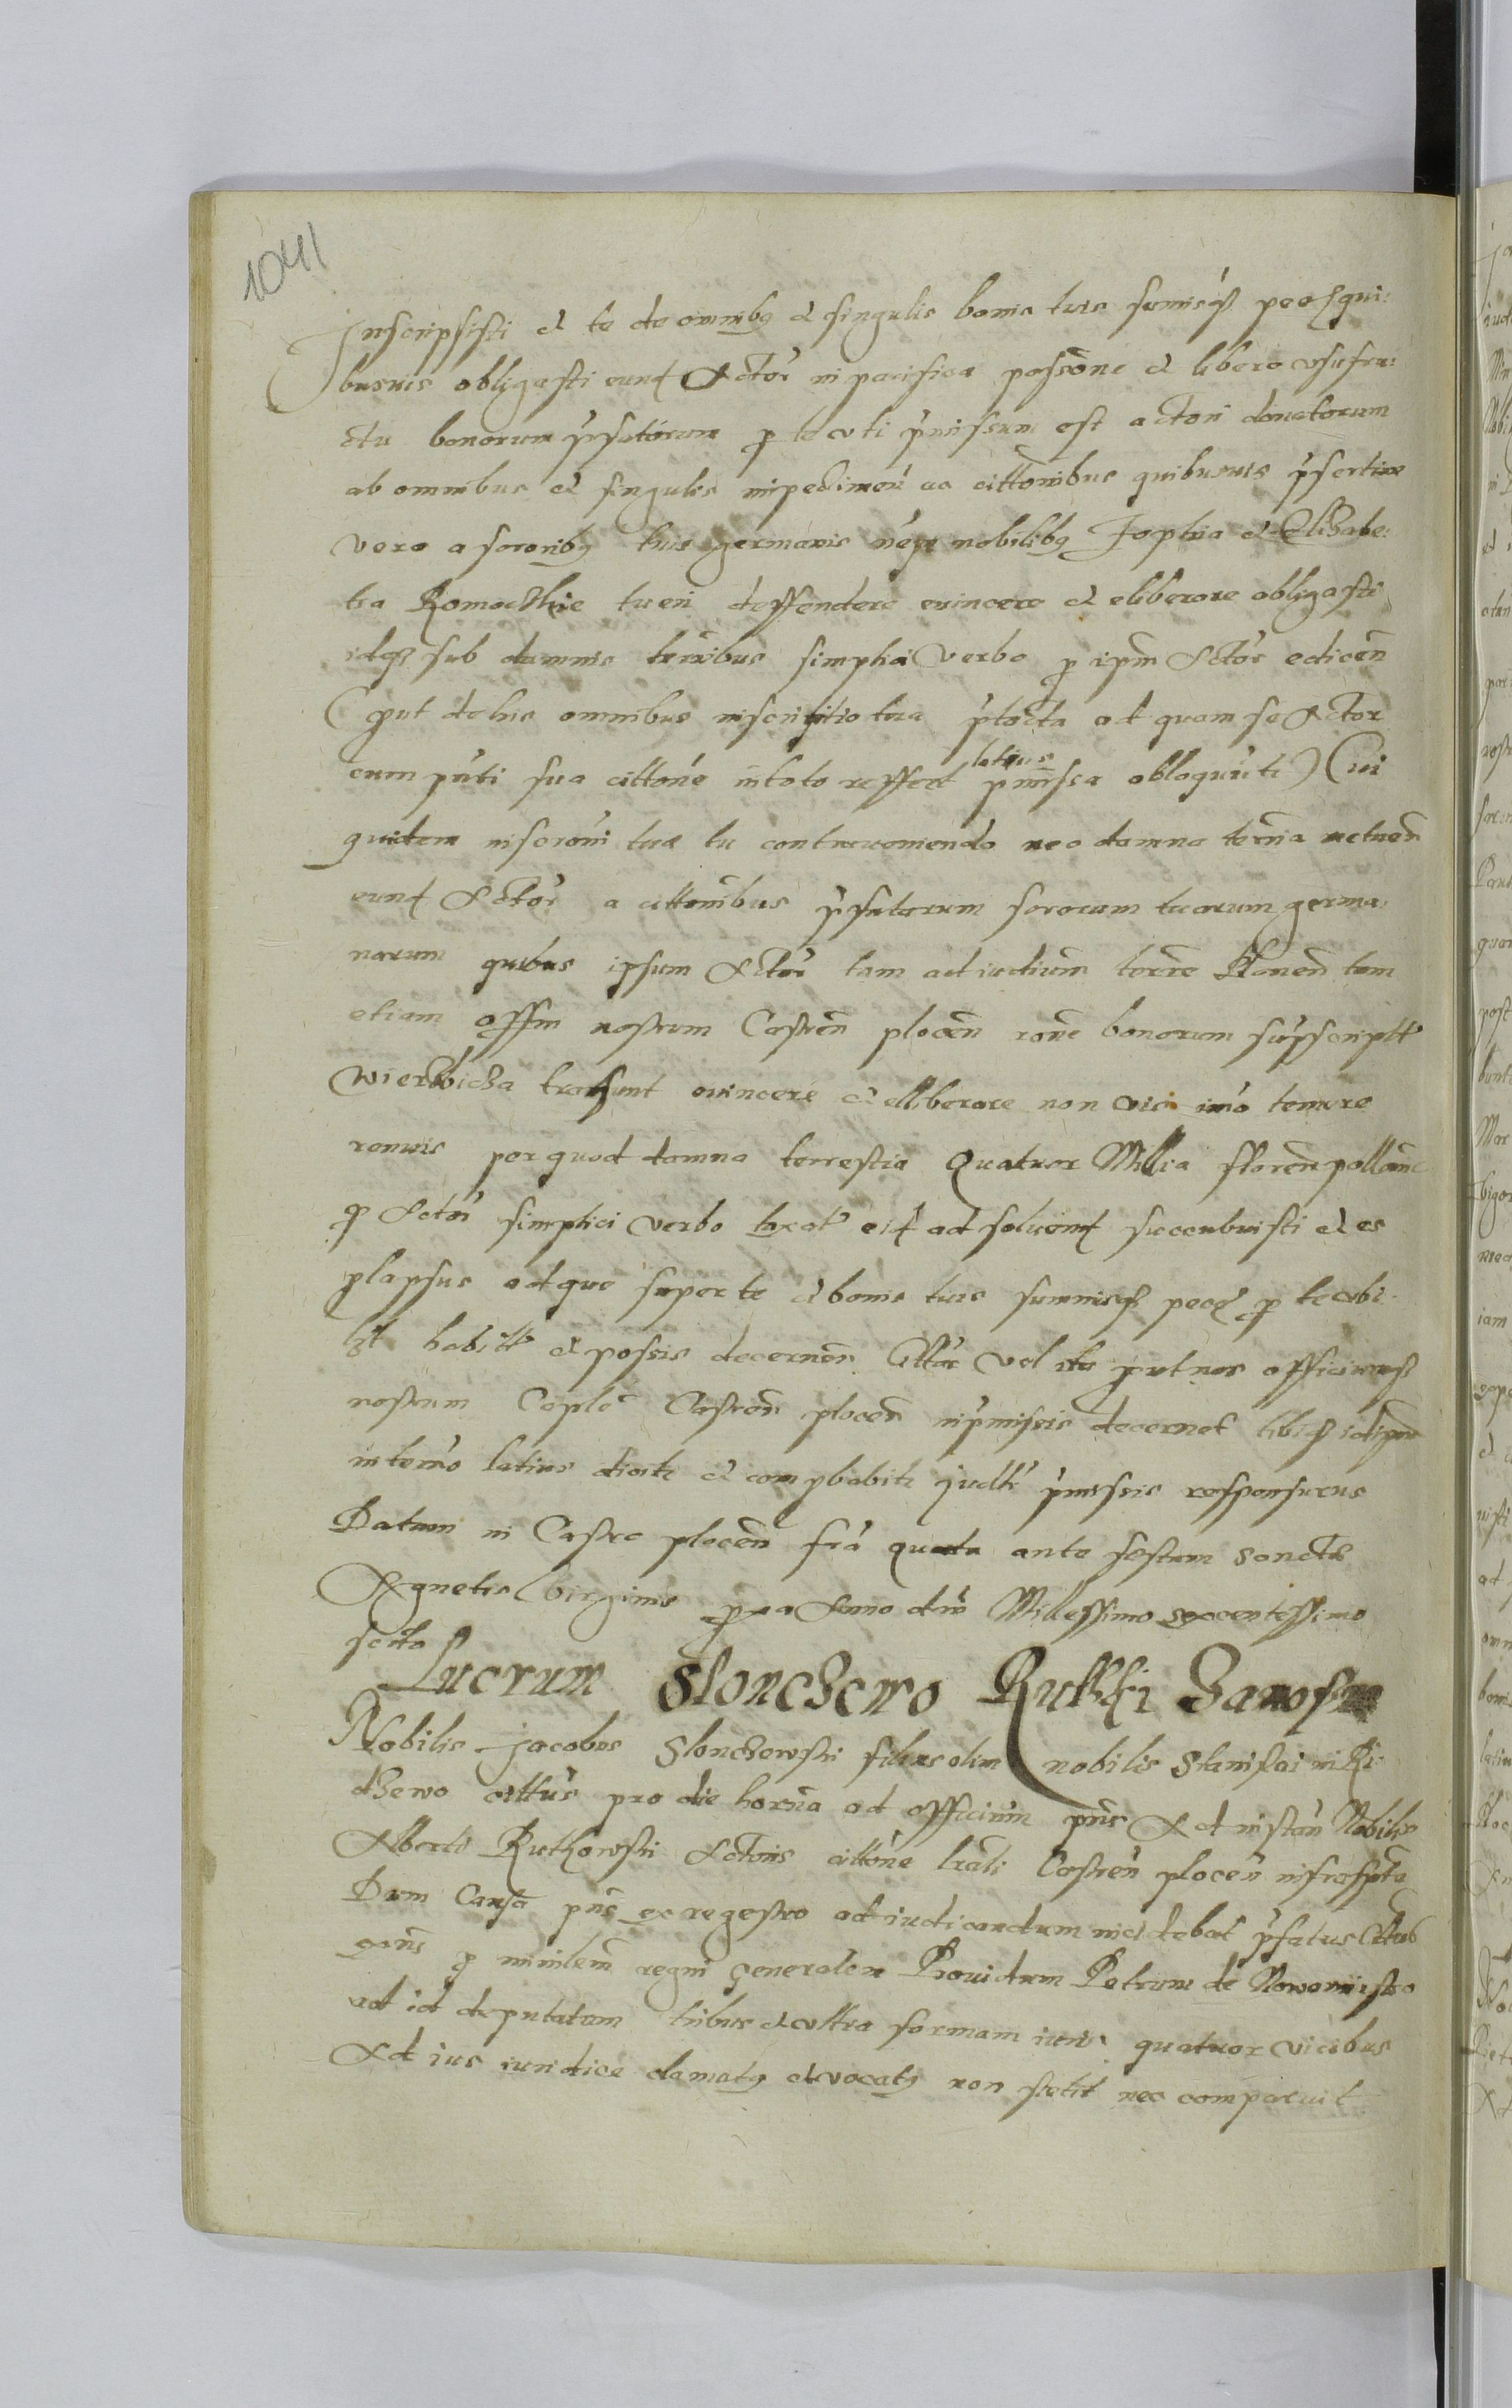 1041
Inscripsisti et te de omnibus et singulis bonis tuis sumisq peccqui:
busuis obligasti eund Actor in pacifica possōne et libero usufru:
ctu bonorum prfatorum p te uti prmissum est actori donatorum
ab omnibus et singulis impedimen ac cittōnibus quibusuis prsertim
vero a sororibq tuis germanis nempe nobilibq Zophia et Elizabe:
tha Romoczkie tueri deffendere euincere et eliberare obligasti
idq sub damnis terribus simplici verbo p ipm Actor edicen
(put de his omnibus inscriptio tua ptacta ad quam se Actor
cum pnti sua cittone in toto reffert latius pmissa obloquuti) Cui
quidem inscroni tuæ tu contraueniendo nec damna terria metuen
eund Actor a cittonibus prfatarum sororum tuarum germa:
narum quibus ipsum Actor tam ad iudium terre Plonen tam
etiam offm nostrum Castren plocen rone bonorum suprscriptt
Wierzbicza trahunt euincere et elliberare non vis imo temere
renuis per quod damna terrestia Quatuor Millia floren pollonic
p Actor simplici verbo taxat eid ad soluond succubuisti et es
plapsus adque super te et bonis tuis summisq pecc p te ubi
lzt habitt et possis decernen Cittar vel ita put nos officiumq
nostrum Caple Castren plocen in pmissis decernet tibiq idipm
in termo latius dicite et compbabite judtr pmissis responsurus
Datum in Castro plocen fra quarta ante festum sanctæ
Agnetis Virginis pxa Anno dni Millessimo sexcentessimo
sexto
Lucrum Slonczewo Rutkki
Nobilis Jacobus Slonczewski filius olim nobilis Stanislai in Ri:
dzewo cittus pro die horna ad officium pns Ad instan Nobilis
Alberti Rutkowski Actoris cittone lrali Castren plocen infrascpta
Dum Causa pns ex regestro ad iudicandum incidebat prfatus Cittus
p minilem regni generalem Prouidum Petrum de Nowomiasto
ad id deputatum tribus et ultra formam iuris quatuor vicibus
Ad ius iuridice clamatq et vocatq non stetit nec comparuit